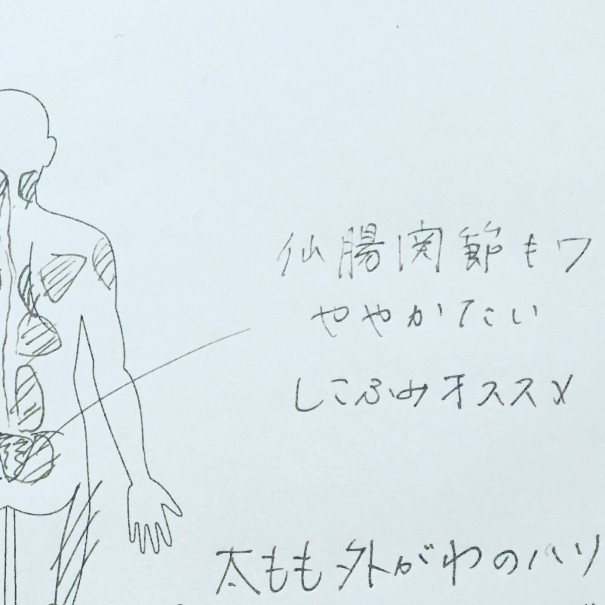 仙腸関節もワ
ややかたい
しこふみオススメ
太もも外がわのハリ